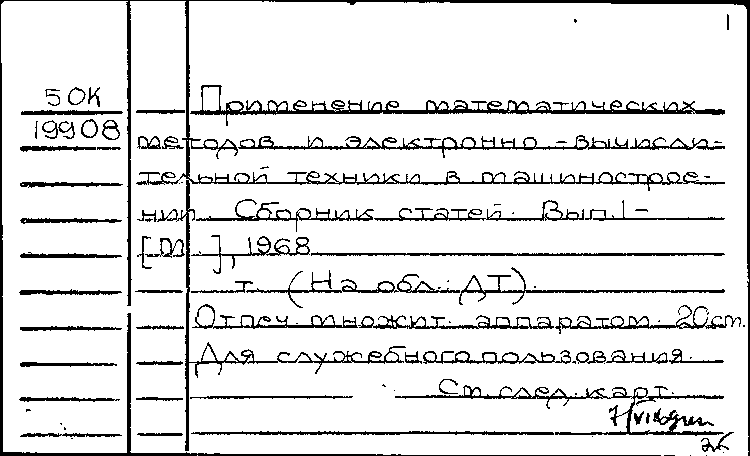 1
50К
19908
Применение математических
методов и электронно-вычисли-
тельной техники в машинострое-
нии. Сборник статей. Вып. 1-
[М.], 1968
т. (На обл.: ДТ).
Отпеч. множит. аппаратом. 20см.
Для служебного пользования.
См. след. карт.